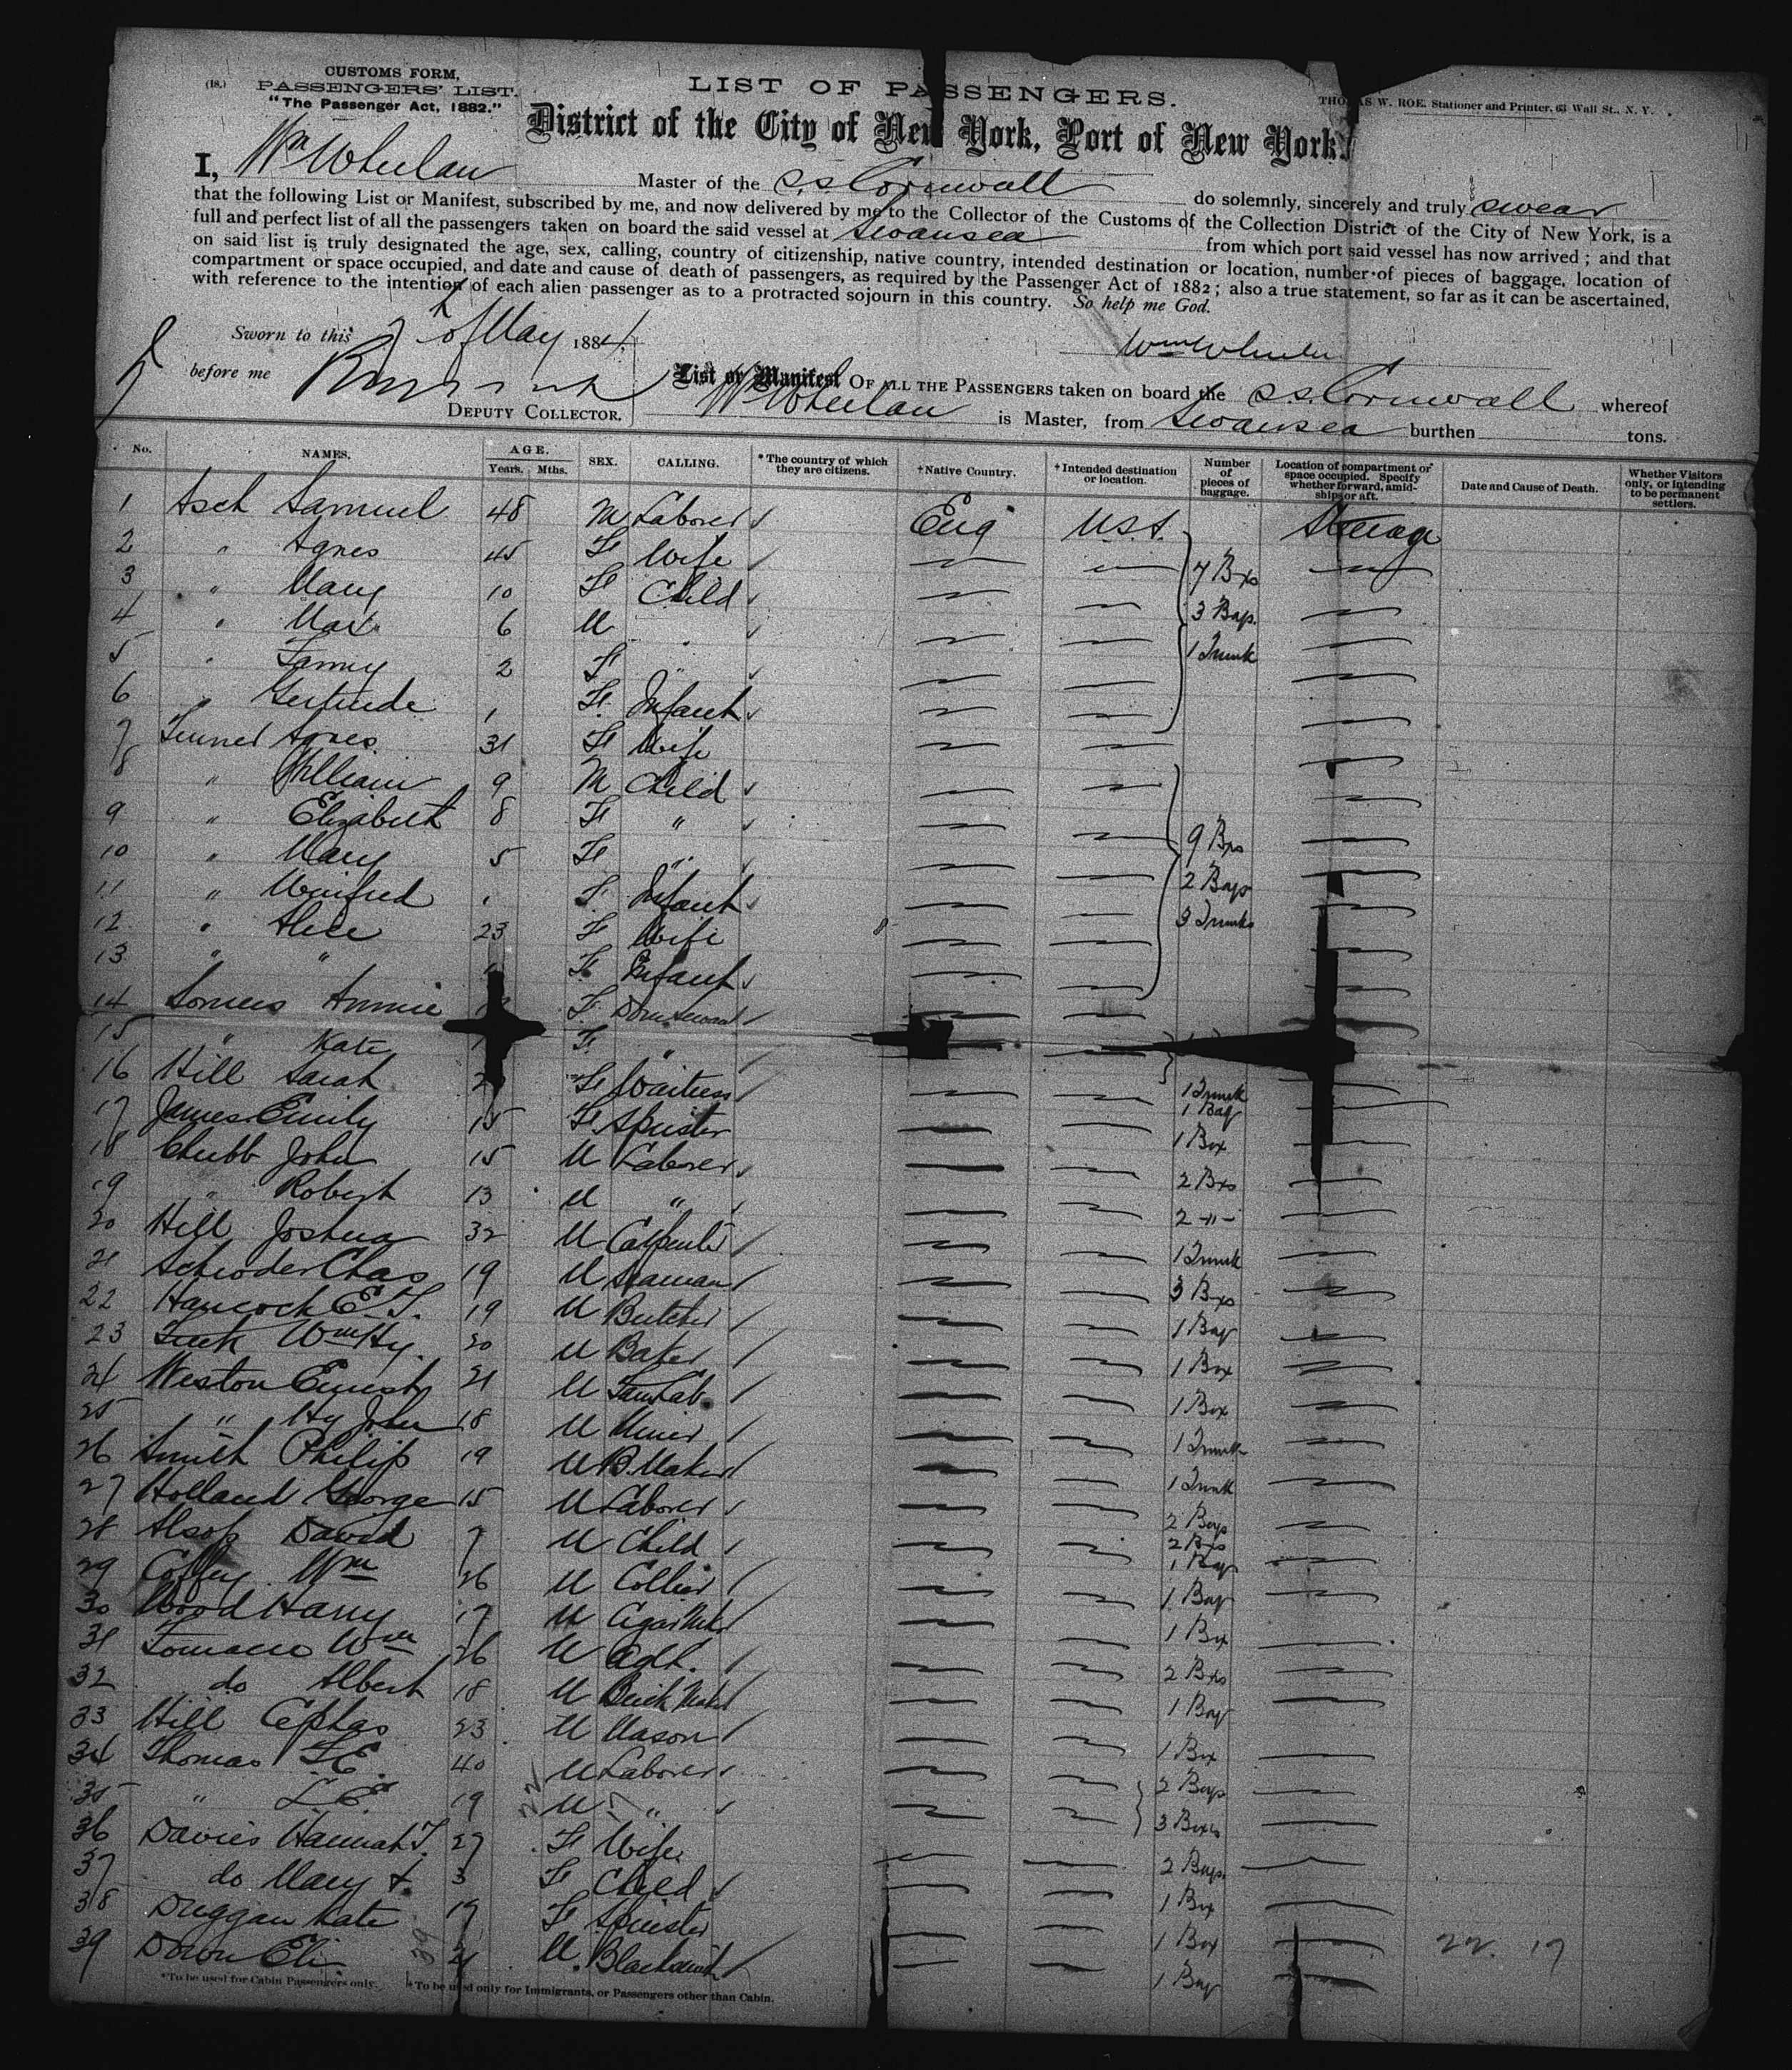 CUSTOMS FORM,
(18.) PASSENGERS' LIST.
"The Passenger Act, 1882."
LIST OF PASSENGERS.
THOMAS W. ROE. Stationer and Printer, 63 Wall St., N. Y.
District of the City of New York, Port of New York.
I, Wm Whelan Master of the S.S. Cornwall do solemnly, sincerely and truly swear
that the following List or Manifest, subscribed by me, and now delivered by me to the Collector of the Customs of the Collection District of the City of New York, is a
full and perfect list of all the passengers taken on board the said vessel at Swansea from which port said vessel has now arrived; and that
on said list is truly designated the age, sex, calling, country of citizenship, native country, intended destination or location, number of pieces of baggage, location of
compartment or space occupied, and date and cause of death of passengers, as required by the Passenger Act of 1882; also a true statement, so far as it can be ascertained,
with reference to the intention of each alien passenger as to a protracted sojourn in this country. So help me God.
Sworn to this 7th of May 1884.
Wm Whelan
before me
DEPUTY COLLECTOR.
List or Manifest OF ALL THE PASSENGERS taken on board the S.S. Cornwall whereof
Wm Whelan is Master, from Swansea burthen tons.
No. NAMES. AGE. Years. Mths. SEX. CALLING. *The country of which they are citizens. †Native Country. †Intended destination or location. Number of pieces of baggage. Location of compartment or space occupied. Specify whether forward, amidships or aft. Date and Cause of Death. Whether Visitors only, or intending to be permanent settlers.
1 Asch Samuel 48 M Laborer Eng U.S.A. Steerage
2 " Agnes 45 F Wife 7 Bxs
3 " Mary 10 F Child 3 Bags.
4 " Max 6 M " 1 Trunk
5 " Fanny 2 F "
6 " Gertrude 1 F. Infant
7 Agnes 31 F Wife
8 " William 9 M Child
9 " Elizabeth 8 F " 9 Bxs
10 " Mary 5 F " 2 Bags
11 " Winifred F Infant 3 Trunks
12 " Alice 23 F Wife
13 " " F Infant
14 Somers Annie F Dom Servant
15 " Kate F "
16 Hill Sarah F Waitress 1 Trunk 1 Bag
17 James Emily 15 F Spinster 1 Box
18 Chubb John 15 M Laborer 2 Bxs
19 " Robert 13 M " 2 -"-
20 Hill Joshua 32 M Carpenter 1 Trunk
21 Schroder Chas 19 M Seaman 3 Bxs
22 Hancock E. T. 19 M Butcher 1 Bag
23 Tuck Wm Hy. 20 M Baker 1 Box
24 Weston Ernest 21 M Farm Lab. 1 Box
25 " Hy John 18 M Miner 1 Trunk
26 Smith Philip 19 M B. Maker 1 Trunk
27 Holland George 15 M Laborer 2 Bags
28 Alsop David 7 M Child 2 Bxs 1 Bag
29 Coffey Wm 26 M Collier 1 Bag
30 Wood Harry 17 M Cigar Mkr 1 Bx
31 Wm 26 M 2 Bxs
32 do Albert 18 M Brick Maker 1 Bag
33 Hill Cephas 23 M Mason 1 Bx
34 Thomas T. E. 40 M Laborer 2 Bags
35 " L. E. 19 M " 3 Boxes
36 Davies Hannah T. 27 F Wife 2 Bags.
37 do Mary A. 3 F Child 1 Bx
38 Duggan Kate 19 F Spinster 1 Box
39 Down Eli 21 M. Blacksmith 1 Bag
22. 17
*To be used for Cabin Passengers only. †To be used only for Immigrants, or Passengers other than Cabin.